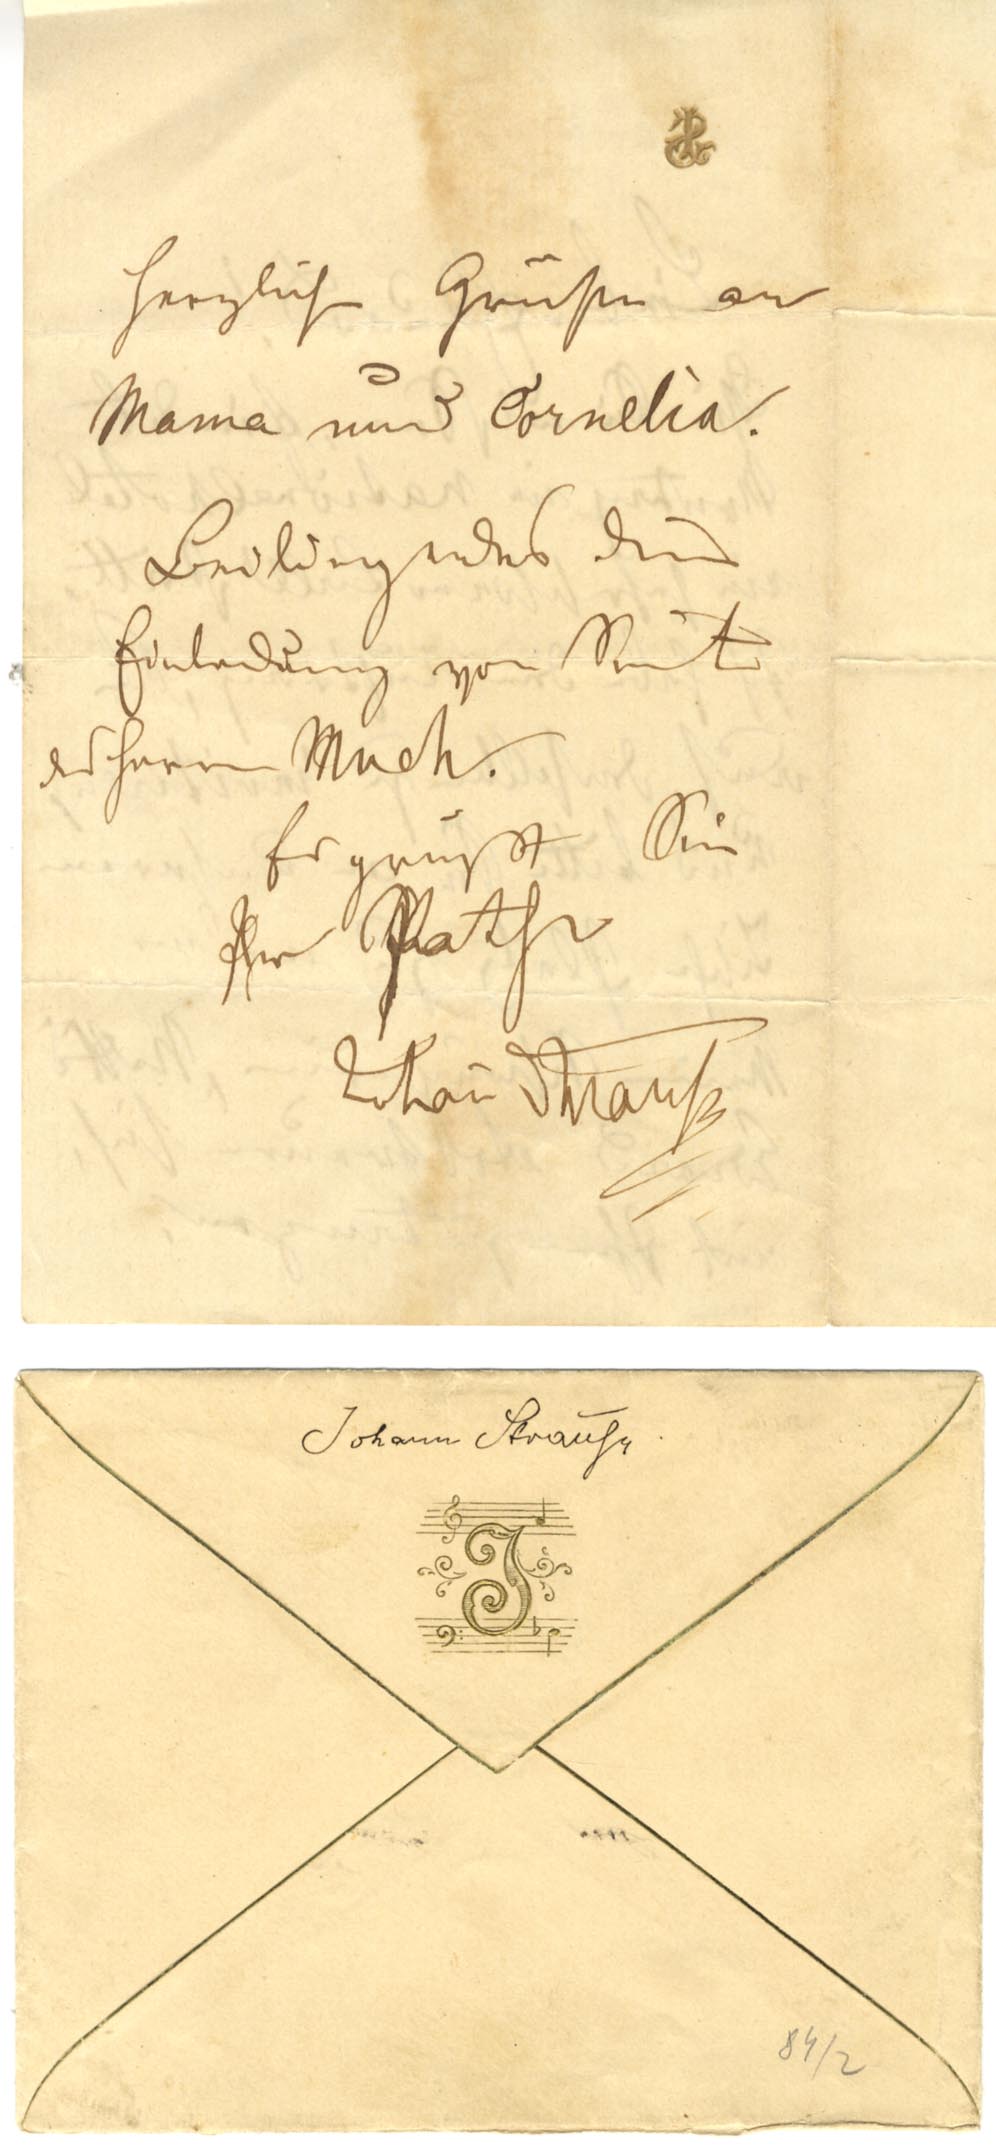 Herzliche Grüße an
Mama und Cornelia.
Beiliegendes die
Einladung von Seite
des Herrn Much.
Es grüßt Sie
Ihr Pathe
Johann Strauß
Johann Strauß
J
84/2